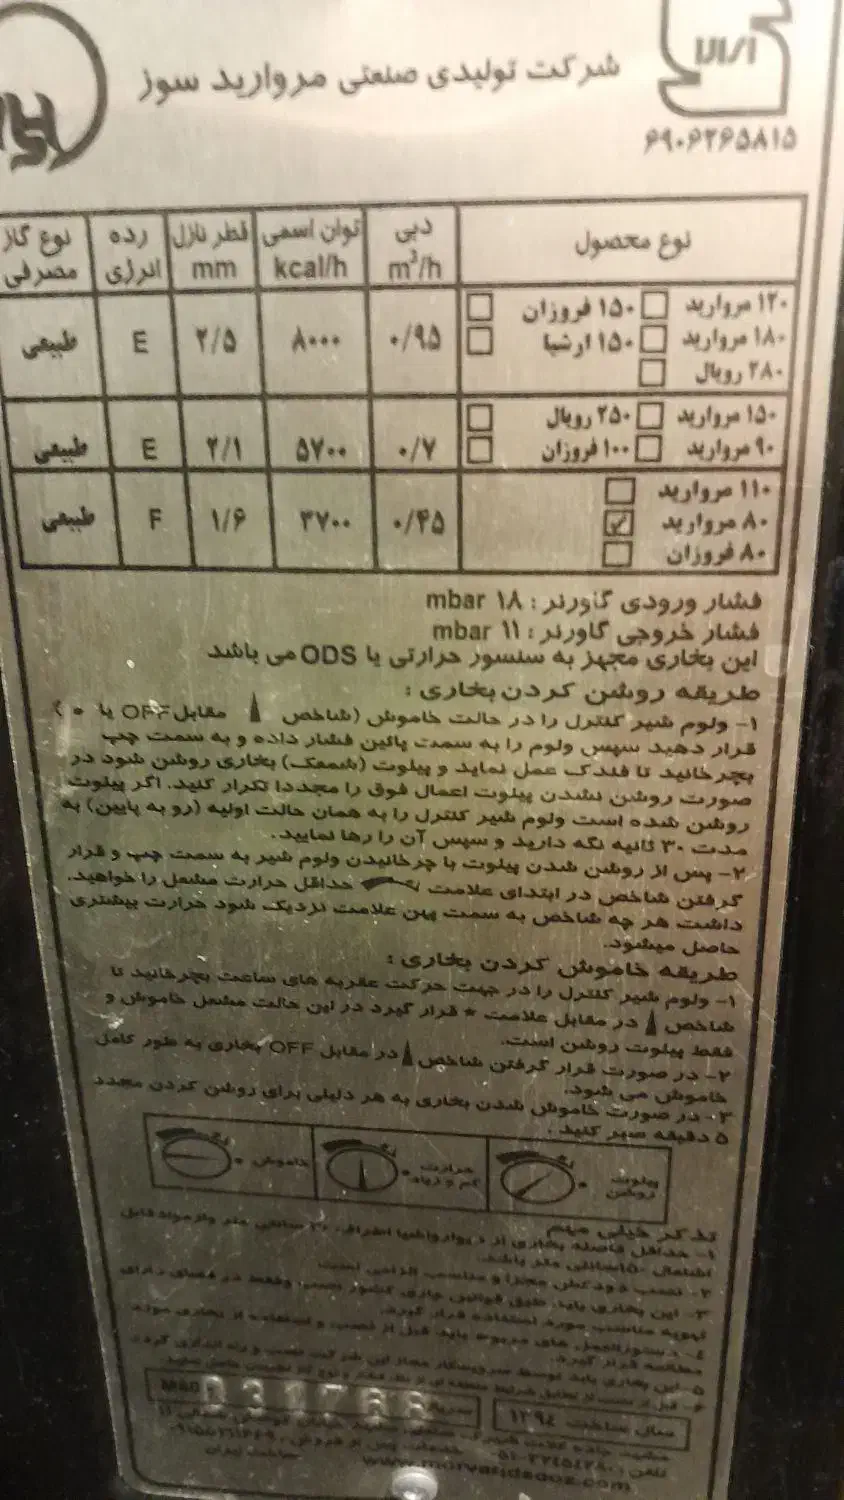 شرکت تولیدی صنعتی مروارید سوز
۶۹۰۶۲۶۵۸۱۵
نوع محصول دبی m³/h توان اسمی kcal/h قطر نازل mm رده انرژی نوع گاز مصرفی
۱۲۰ مروارید ۱۵۰ فروزان
۱۸۰ مروارید ۱۵۰ ارشیا ۰/۹۵ ۸۰۰۰ ۲/۵ E طبیعی
۲۸۰ رویال
۱۵۰ مروارید ۲۵۰ رویال
۹۰ مروارید ۱۰۰ فروزان ۰/۷ ۵۷۰۰ ۲/۱ E طبیعی
۱۱۰ مروارید
۸۰ مروارید ✓ ۰/۴۵ ۳۷۰۰ ۱/۶ F طبیعی
۸۰ فروزان
فشار ورودی گاورنر : ۱۸ mbar
فشار خروجی گاورنر : ۱۱ mbar
این بخاری مجهز به سنسور حرارتی یا ODS می باشد
طریقه روشن کردن بخاری :
۱- ولوم شیر کنترل را در حالت خاموش (شاخص مقابل OFF یا • )
قرار دهید سپس ولوم را به سمت پائین فشار داده و به سمت چپ
بچرخانید تا فندک عمل نماید و پیلوت (شمعک) بخاری روشن شود در
صورت روشن نشدن پیلوت اعمال فوق را مجددا تکرار کنید. اگر پیلوت
روشن شده است ولوم شیر کنترل را به همان حالت اولیه (رو به پایین) به
مدت ۳۰ ثانیه نگه دارید و سپس آن را رها نمایید.
۲- پس از روشن شدن پیلوت با چرخانیدن ولوم شیر به سمت چپ و قرار
گرفتن شاخص در ابتدای علامت حداقل حرارت مشعل را خواهید
داشت هر چه شاخص به سمت پهن علامت نزدیک شود حرارت بیشتری
حاصل میشود.
طریقه خاموش کردن بخاری :
۱- ولوم شیر کنترل را در جهت حرکت عقربه های ساعت بچرخانید تا
شاخص در مقابل علامت * قرار گیرد در این حالت مشعل خاموش و
فقط پیلوت روشن است.
۲- در صورت قرار گرفتن شاخص در مقابل OFF بخاری به طور کامل
خاموش می شود.
۳- در صورت خاموش شدن بخاری به هر دلیلی برای روشن کردن مجدد
۵ دقیقه صبر کنید.
پیلوت روشن حرارت کم و زیاد خاموش
تذکر خیلی مهم
۱- حداقل فاصله بخاری از دیوار واشیا اطراف، سانتی متر واز مواد قابل
اشتعال سانتی متر باشد.
۲- نصب دودکش مجزا و مناسب الزامی است
۳- این بخاری باید طبق قوانین جاری کشور نصب وفقط در فضای دارای
تهویه مناسب مورد استفاده قرار گیرد.
۴- دستورالعمل های مربوط باید قبل از نصب و استفاده از بخاری مورد
مطالعه قرار گیرد.
۵- این بخاری باید توسط سرویسکار مجاز این شرکت نصب و راه اندازی گردد
سال ساخت ۱۳۹۴ سریال
www.morvaridsooz.com